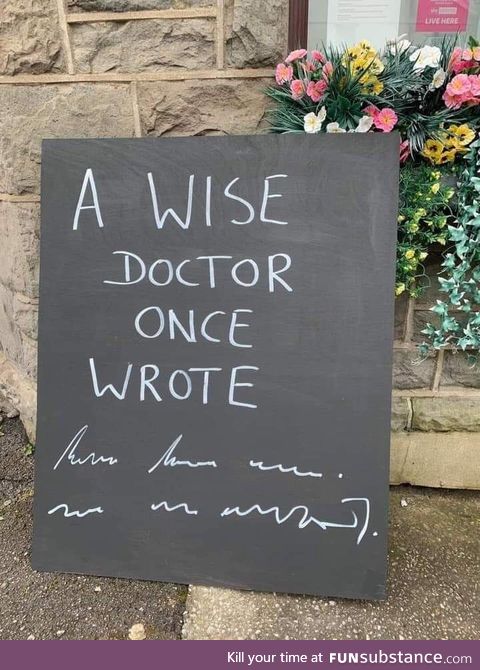 LIVE HERE
A WISE
DOCTOR
ONCE
WROTE
Kill your time at FUNsubstance.com